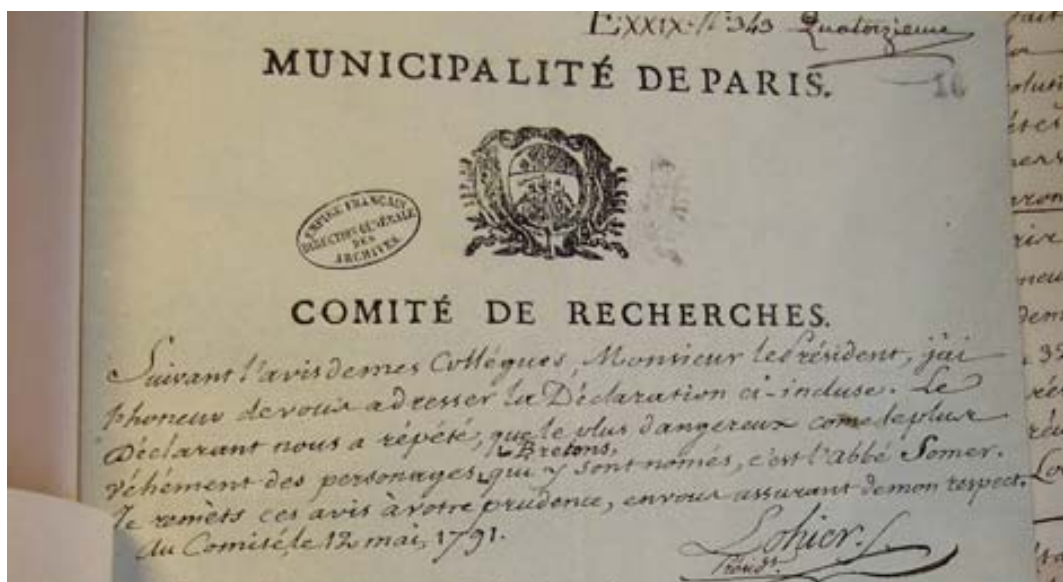 EXXIX. N.° 343 Quatorzieme
16
MUNICIPALITÉ DE PARIS.
EMPIRE FRANÇAIS
DIRECTION GÉNÉRALE
DES
ARCHIVES
COMITÉ DE RECHERCHES.
Suivant l'avis de mes Collégues, Monsieur le Président, j'ai
l'honeur de vous adresser la Déclaration ci-incluse. Le
Déclarant nous a répété, que le plus dangereux come le plus
Bretons,
véhément des personages, qui y sont només, c'est l'abbé Somer.
Je remèts ces avis à votre prudence, en vous assurant de mon respect.
du Comité, le 12 mai, 1791.
Lohier.
Présidt.